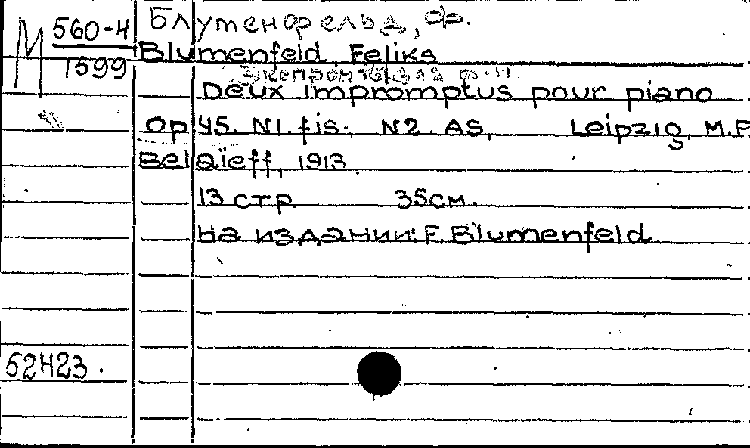 М 560-Н
1599
Блуменфельд, Ф.
Blumenfeld, Feliks
Экспромты для ф-п.
Deux impromptus pour piano
Op 45. N1. fis. N2. AS, Leipzig, M.P.
Belaieff, 1913
13 стр 35см.
На издании: F. Blumenfeld
52423.